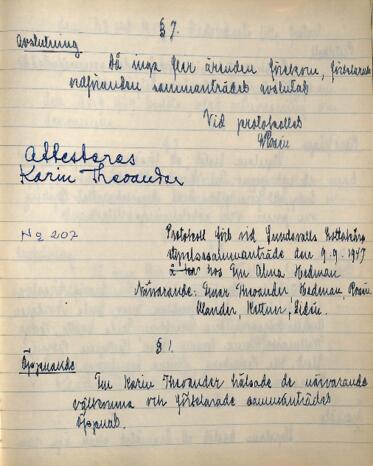 § 7.
Avslutning
Då inga fler ärenden förekom, förklarade
ordföranden sammanträdet avslutat
Vid protokollet
Attesteras
Karin Theorander
No 207
Protokoll förb vid Sundsvalls Lottakårs
styrelsesammanträde den 9.9.1947
hos Fru Alma Hedman
Närvarande: Fruar Theorander, Hedman, Rosén
Wander, Kettner, Lidén.
§ 1.
Öppnande
Fru Karin Theorander hälsade de närvarande
välkomna och förklarade sammanträdet
öppnat.